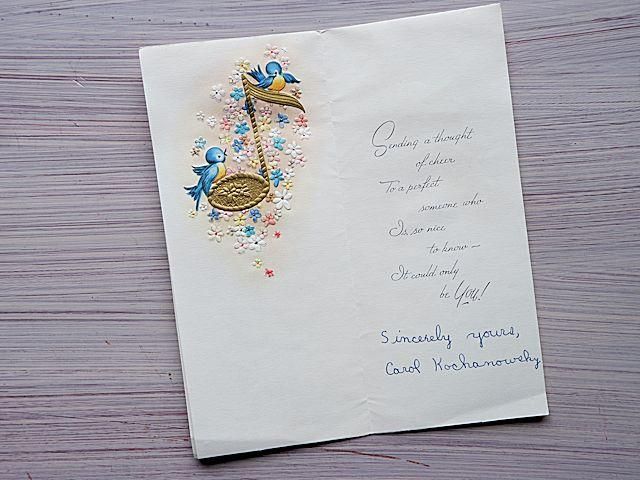 Sending a thought
of cheer
To a perfect
someone who
Is so nice
to know—
It could only
be You!
Sincerely yours,
Carol Kochanowsky